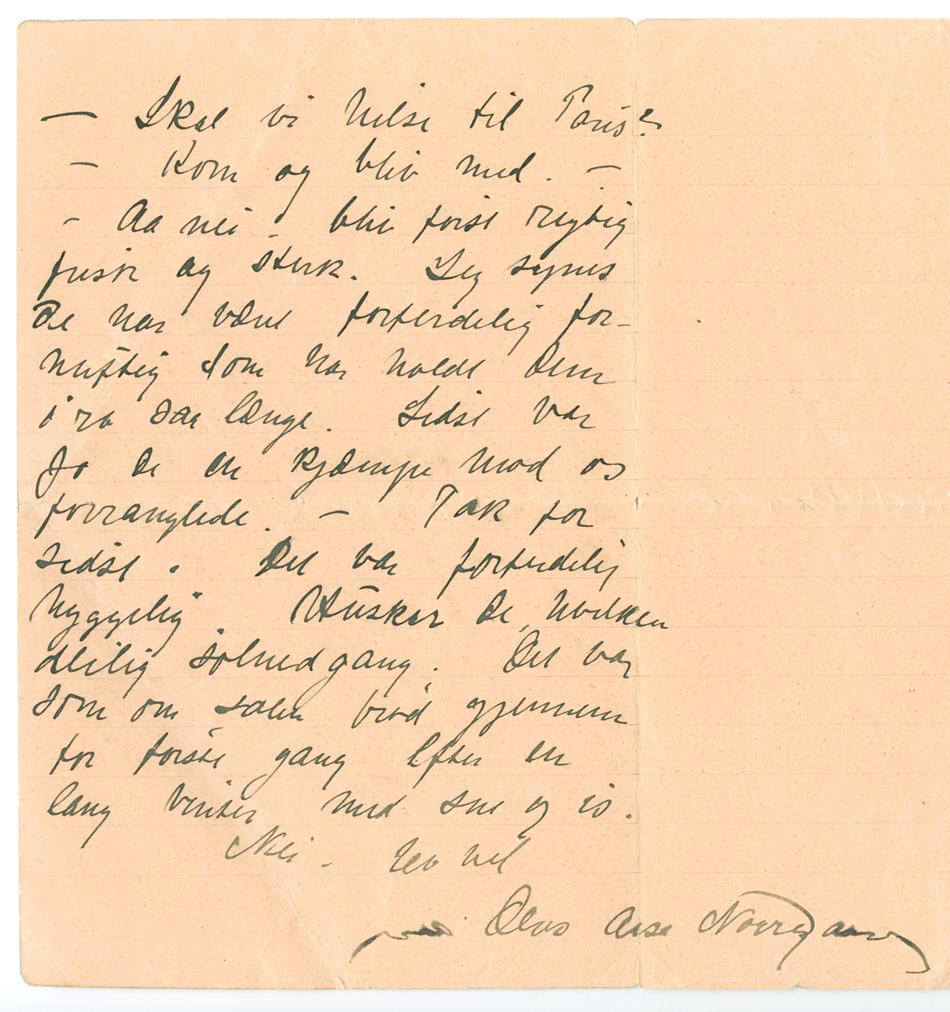 — Skal vi hilse til Paris?
— Kom og bliv med. —
- Aa nei - bli først rigtig
frisk og sterk. Jeg synes
De har vært forferdelig for-
nuftig som har holdt Dem
i ro saa længe. Sidst var
jo De en kjæmpe mod os
forranglede. — Tak for
sidst. Det var forferdelig
hyggelig. Husker De, hvilken
deilig solnedgang. Det var
som om solen brød gjennem
for første gang efter en
lang vinter med sne og is.
Nei - lev vel
Deres Aase Nørregaard